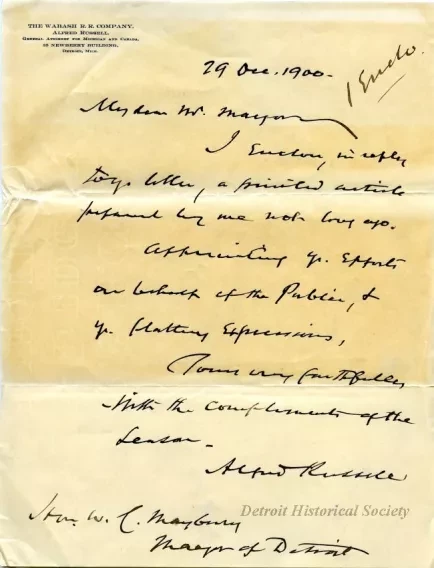 THE WABASH R. R. COMPANY.
ALFRED RUSSELL,
GENERAL ATTORNEY FOR MICHIGAN AND CANADA,
NEWBERRY BUILDING,
DETROIT, MICH.
29 Dec. 1900.
1 Enclo.
My dear Mr. Mayor
I Enclose, in reply
to yr letter, a printed article
prepared by me not long ago.
Appreciating yr. Efforts
on behalf of the Public, &
yr. flattering Expressions,
Yours very faithfully
With the compliments of the
Season -
Alfred Russell
Hon. W. C. Maybury
Mayor of Detroit
Detroit Historical Society